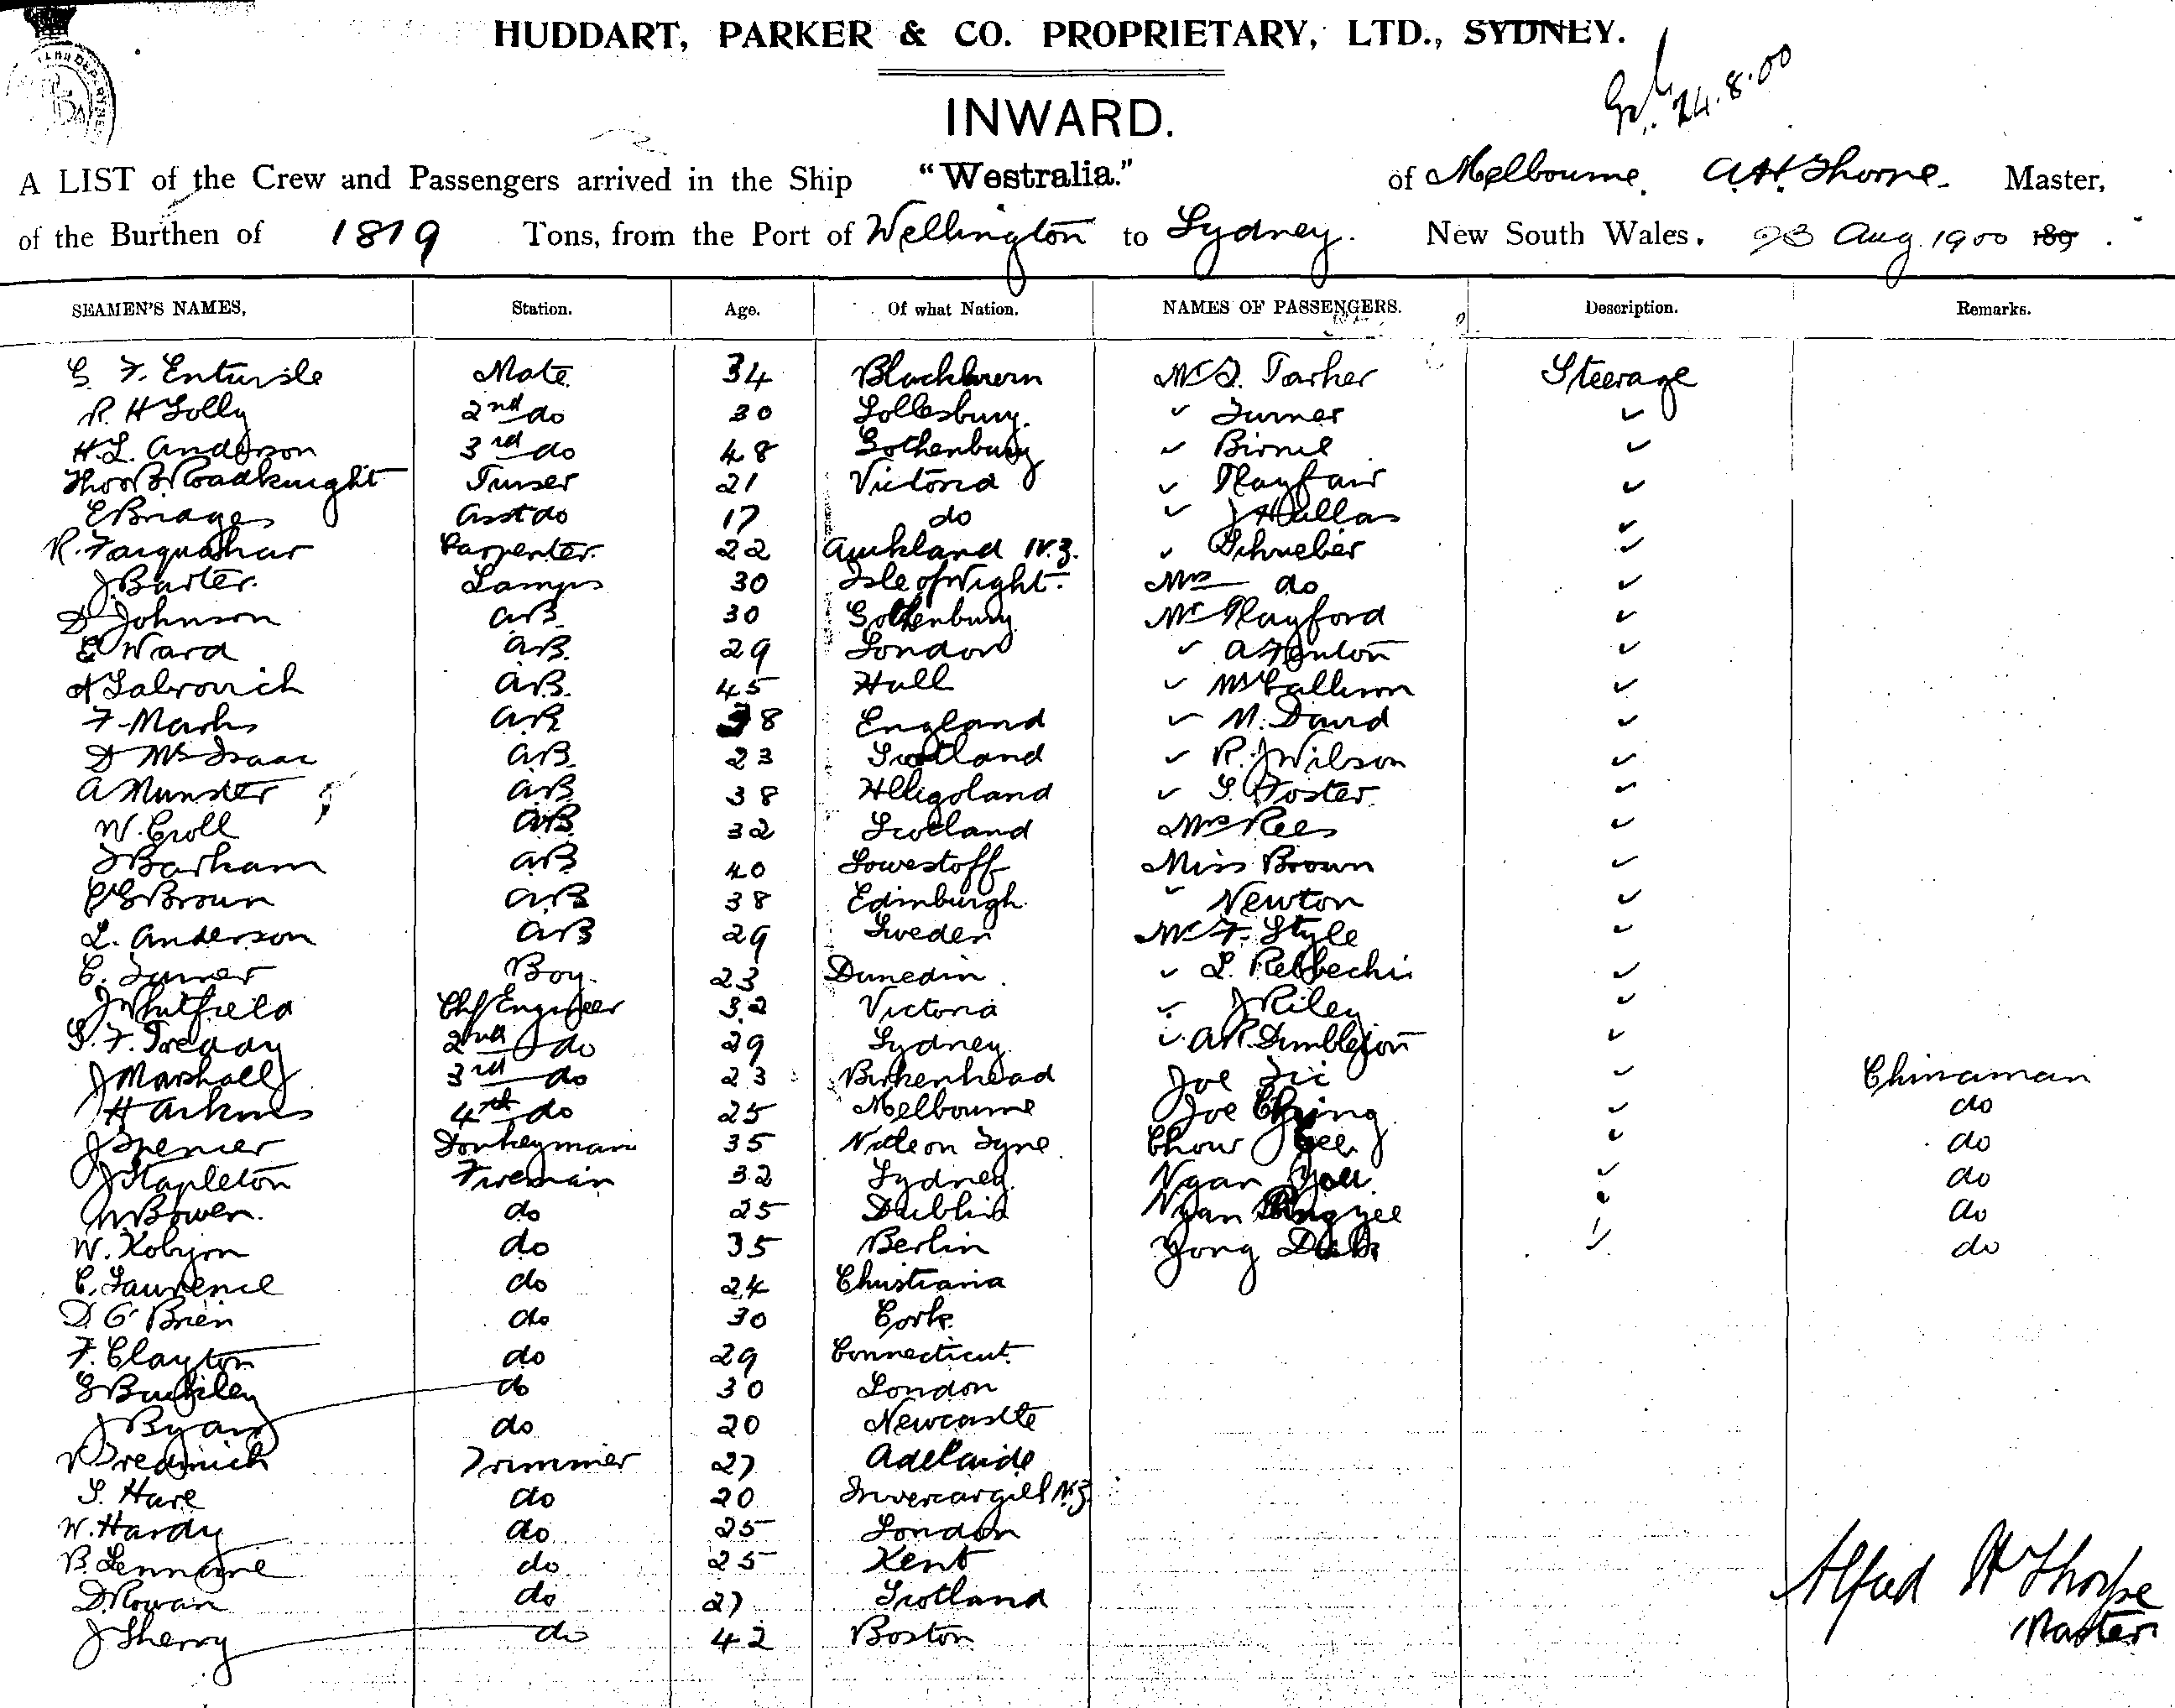 HUDDART, PARKER & CO. PROPRIETARY, LTD., SYDNEY.
24.8.00
INWARD.
A LIST of the Crew and Passengers arrived in the Ship "Westralia." of Melbourne. A H Thorpe. Master,
of the Burthen of 1819 Tons, from the Port of Wellington to Sydney. New South Wales. 23 Aug. 1900 189 .
SEAMEN'S NAMES, Station. Age. Of what Nation. NAMES OF PASSENGERS. Description. Remarks.
G. F. Entwisle Mate 34 Blackburn Mr J. Parker Steerage
R. H Jolly 2nd do 30 Tollesbury. Turner
H. L. Anderson 3rd do 48 Gothenburg Birnie
Thos B Roadknight Purser 21 Victoria Playfair
E Bridges Asst do 17 do J Hallas
R. Farquahar Carpenter. 22 Auckland N.Z. Schrieber
J. Barter. Lamps 30 Isle of Wight. Mrs do
D Johnson AB. 30 Gothenburg Mr Playford
E Ward AB. 29 London A Fenton
AB. 45 Hull McCallum
F. Marks AB 38 England M. David
D McIsaac AB. 23 Scotland R. J Wilson
A Munster AB 38 Heligoland G. Foster.
W. Croll AB 32 Scotland Mrs Rees
J Barham AB 40 Lowestoff Miss Brown
C G Brown AB 38 Edinburgh. Newton
L. Anderson AB 29 Sweden Mr F. Style
C. Turner Boy. 23 Dunedin. L. Rebbechi
J Whitfield Chf Engineer 32 Victoria J Riley
G. F. Tready 2nd do 29 Sydney. A R. Dumbleton
J Marshall 3rd do 23 Birkenhead Joe Chinaman
H Atkins 4th do 25 Melbourne Joe Ching do
J Spencer Donkeyman 35 N'cle on Tyne. Chow Gee do
J Stapleton Fireman 32 Sydney. Ngan You do
M Bowen. do 25 Dublin Ngan do
W. Kobyon do 35 Berlin Yong do
C. Lawrence do 24 Christiania
D. O'Brien do 30 Cork.
F. Clayton do 29 Connecticut.
G Buckley do 30 London
J Ryan do 20 Newcastle
Fredrich Trimmer 27 Adelaide
G. Hare do 20 Invercargill N.Z.
W. Hardy do 25 London
B. do 25 Kent
D. Rowan do 27 Scotland
J Sherry do 42 Boston
Alfred H Thorpe
Master